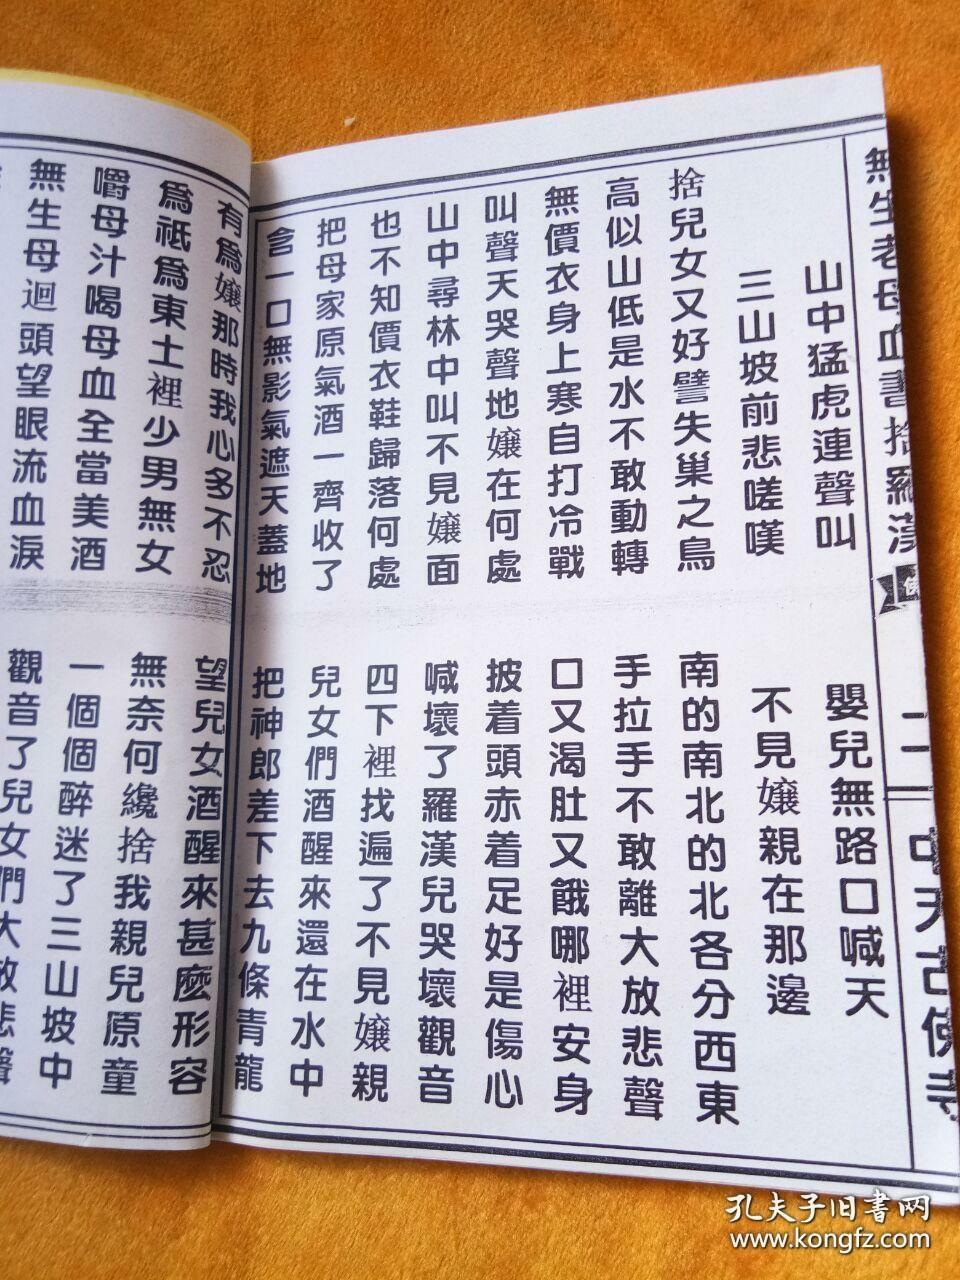 無生老母血書捨羅漢
二一
中天古佛寺
山中猛虎連聲叫
嬰兒無路口喊天
三山坡前悲嗟嘆
不見孃親在那邊
捨兒女又好譬失巢之鳥
南的南北的北各分西東
高似山低是水不敢動轉
手拉手不敢離大放悲聲
無價衣身上寒自打冷戰
口又渴肚又餓哪裡安身
叫聲天哭聲地孃在何處
披着頭赤着足好是傷心
山中尋林中叫不見孃面
喊壞了羅漢兒哭壞觀音
也不知價衣鞋歸落何處
四下裡找遍了不見孃親
把母家原氣酒一齊收了
兒女們酒醒來還在水中
含一口無影氣遮天蓋地
把神郎差下去九條青龍
有爲孃那時我心多不忍
望兒女酒醒來甚麼形容
爲祇爲東土裡少男無女
無奈何纔捨我親兒原童
嚼母汁喝母血全當美酒
一個個醉迷了三山坡中
無生母迴頭望眼流血淚
觀音了兒女們大放悲聲
孔夫子旧書网
www.kongfz.com